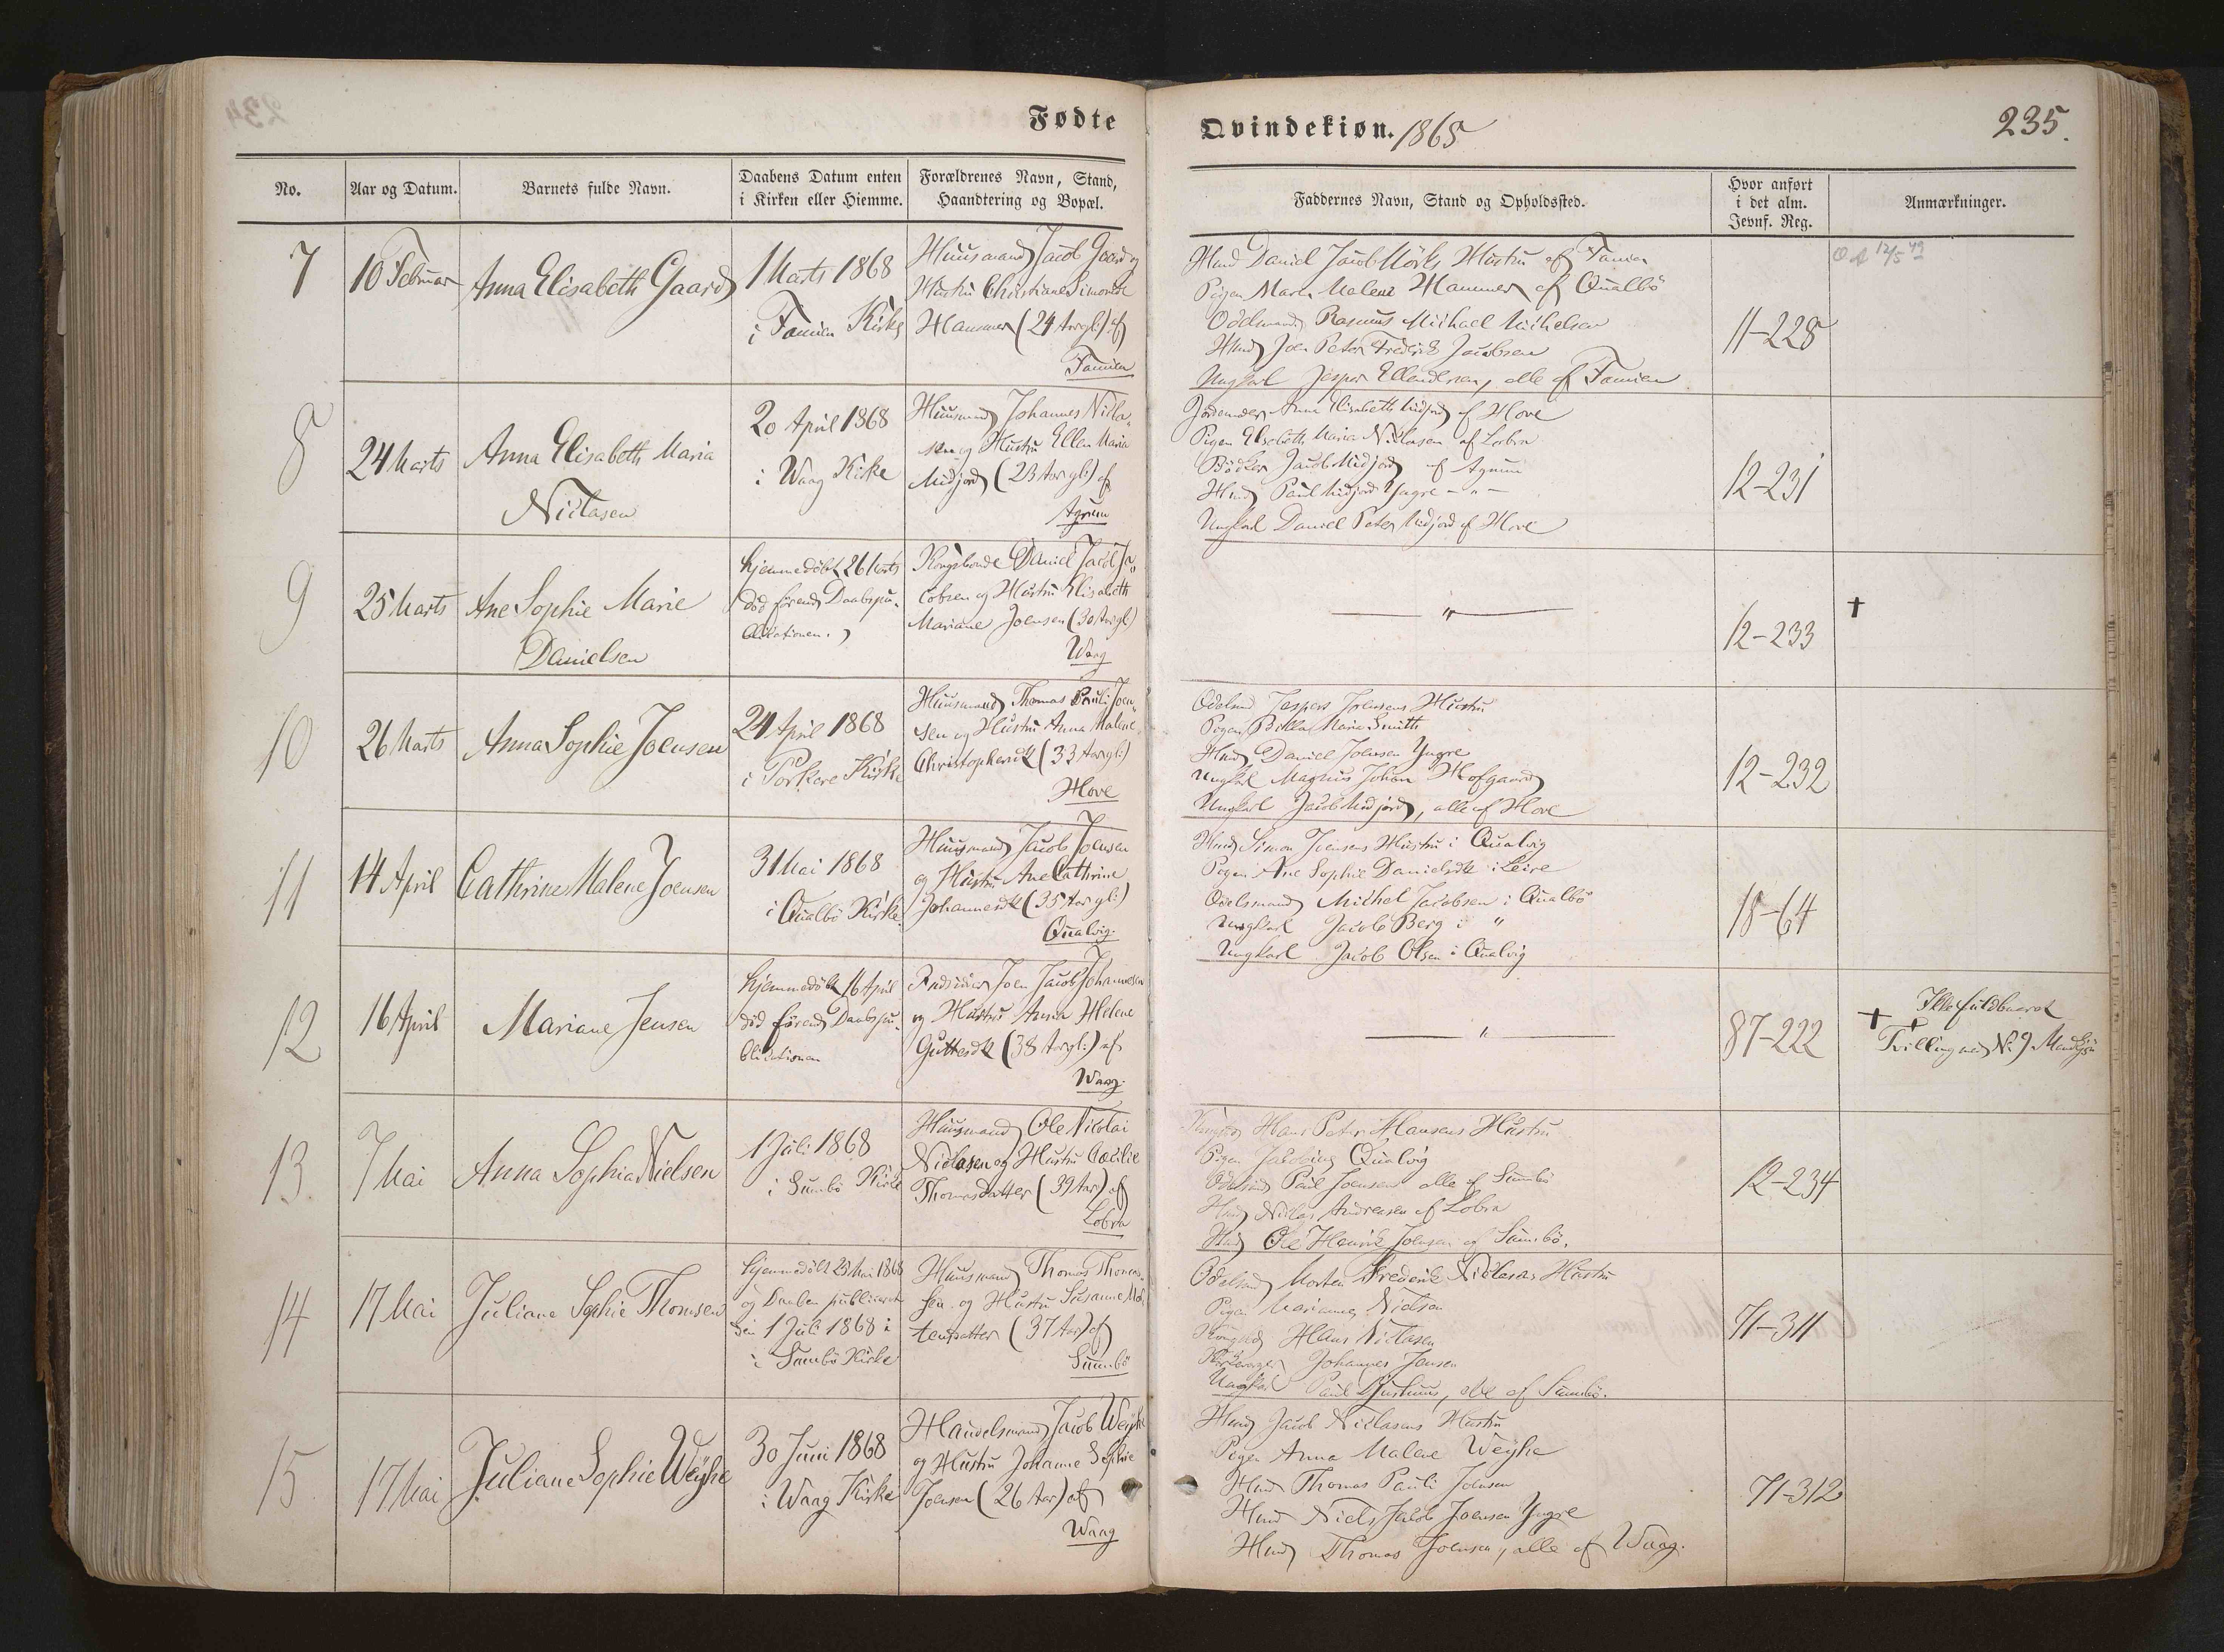 Fødte
Qvindekiøn. 1868
235.
No.
Aar og Datum.
Barnets fulde Navn.
Daabens Datum enten
i Kirken eller Hiemme.
Forældrenes Navn, Stand,
Haandtering og Bopæl.
Faddernes Navn, Stand og Opholdssted.
Hvor anført
i det alm.
Jevnf. Reg.
Anmærkninger.
7
10 Februar
Anna Elisabeth Gaard
1 Marts 1868
i Famien Kirke
Huusmand Jacob Gaard og
Hustru Christiane Simonsdt
Hansen (24 Aar gl:) af
Famien
Hmd Daniel Jacob Mörks Hustru af Famien
Pigen Maren Malene Hammer af Qualbö
Odelsmand Rasmus Michael Michelsen
Hmd Joen Peter Frederik Jacobsen
Ungkarl Jesper Ellendersen, alle af Famien
11-228
12/5 49
8
24 Marts
Anna Elisabeth Maria
Niclasen
20 April 1868
i Waag Kirke
Huusmand Johannes Nicla-
sen og Hustru Ellen Maria
Midjord (23 Aar gl:) af
Agrum
Jordemoder Anna Elisabeth Midjord af Hove
Pigen Elsebeth Maria Niclasen af Lobra
Bödker Jacob Midjord af Agrum
Hmd Paul Midjord Yngre - " -
Ungkarl Daniel Peter Midjord af Hove
12-231
9
25 Marts
Ane Sophie Marie
Danielsen
hjemmedöbt 26 Marts
död förend Daabspu-
blicationen.
Kongsbonde Daniel Jacob Ja-
cobsen og Hustru Elisabeth
Mariane Joensen (30 Aar gl:)
Waag
"
12-233
†
10
26 Marts
Anna Sophie Joensen
24 April 1868
i Porkere Kirke
Huusmand Thomas Pauli Joen-
sen og Hustru Anna Malene
Christophersdt (33 Aar gl:)
Hove
Odelsmd Jespers Joensens Hustru
Pigen Billa Marie Smith
Hmd Daniel Joensen Yngre
Ungkarl Magnus Johan Hofgaard
Ungkarl Jacob Midjord, alle af Hove
12-232
11
14 April
Cathrine Malene Joensen
31 Mai 1868
i Qualbö Kirke
Huusmand Jacob Joensen
og Hustru Ane Cathrine
Johannesdt (35 Aar gl:)
Qualvig.
Hmd Simon Joensens Hustru i Qualvig
Pigen Ane Sophie Danielsdt i Leire
Odelsmand Michel Jacobsen i Qualbö
Ungkarl Jacob Berg i "
Ungkarl Jacob Olsen i Qualvig
18-64
12
16 April
Mariane Jensen
hjemmedöbt 16 April
död förend Daabspu-
blicationen
Indsidder Joen Jacob Johannesen
og Hustru Anna Helene
Guttesdt (38 Aar gl:) af
Waag.
"
87-222
† † Ikke fuldbaaret
Tvilling med No 9 Mandkjön
13
7 Mai
Anna Sophia Nielsen
1 Juli 1868
i Sumbö Kirke
Huusmand Ole Nicolai
Niclasen og Hustru Cæcilie
Thomasdatter (39 Aar) af
Lobra
Hans Peter Hansens Hustru
Pigen Jacobine Qualvig
Odelsmd Paul Joensen alle af Sumbö
Hmd Niclas Andreasen af Lobra
Hmd Ole Henrik Joensen af Sumbö.
12-234
14
17 Mai
Juliane Sophie Thomsen
hjemmedöbt 23 Mai 1868
og Daaben publiceret
den 1 Juli 1868 i
i Sumbö Kirke
Huusmand Thomas Thomas-
sen og Hustru Susanne Mor-
tensdatter (37 Aar) af
Sumbö
Odelsmd Morten Frederik Niclasens Hustru
Pigen Marianne Nielsen
Hans Niclasen
Johannes Jensen
Ungkarl Paul Djurhuus, alle af Sumbö.
71-311
15
17 Mai
Juliane Sophie Weyhe
30 Juni 1868
i Waag Kirke
Handelsmand Jacob Weyhe
og Hustru Johanne Sophie
Joensen (26 Aar) af
Waag
Hmd Jacob Niclasens Hustru
Pigen Anna Malene Weyhe
Hmd Thomas Pauli Joensen
Hmd Niels Jacob Joensen Yngre
Hmd Thomas Joensen, alle af Waag.
71-312